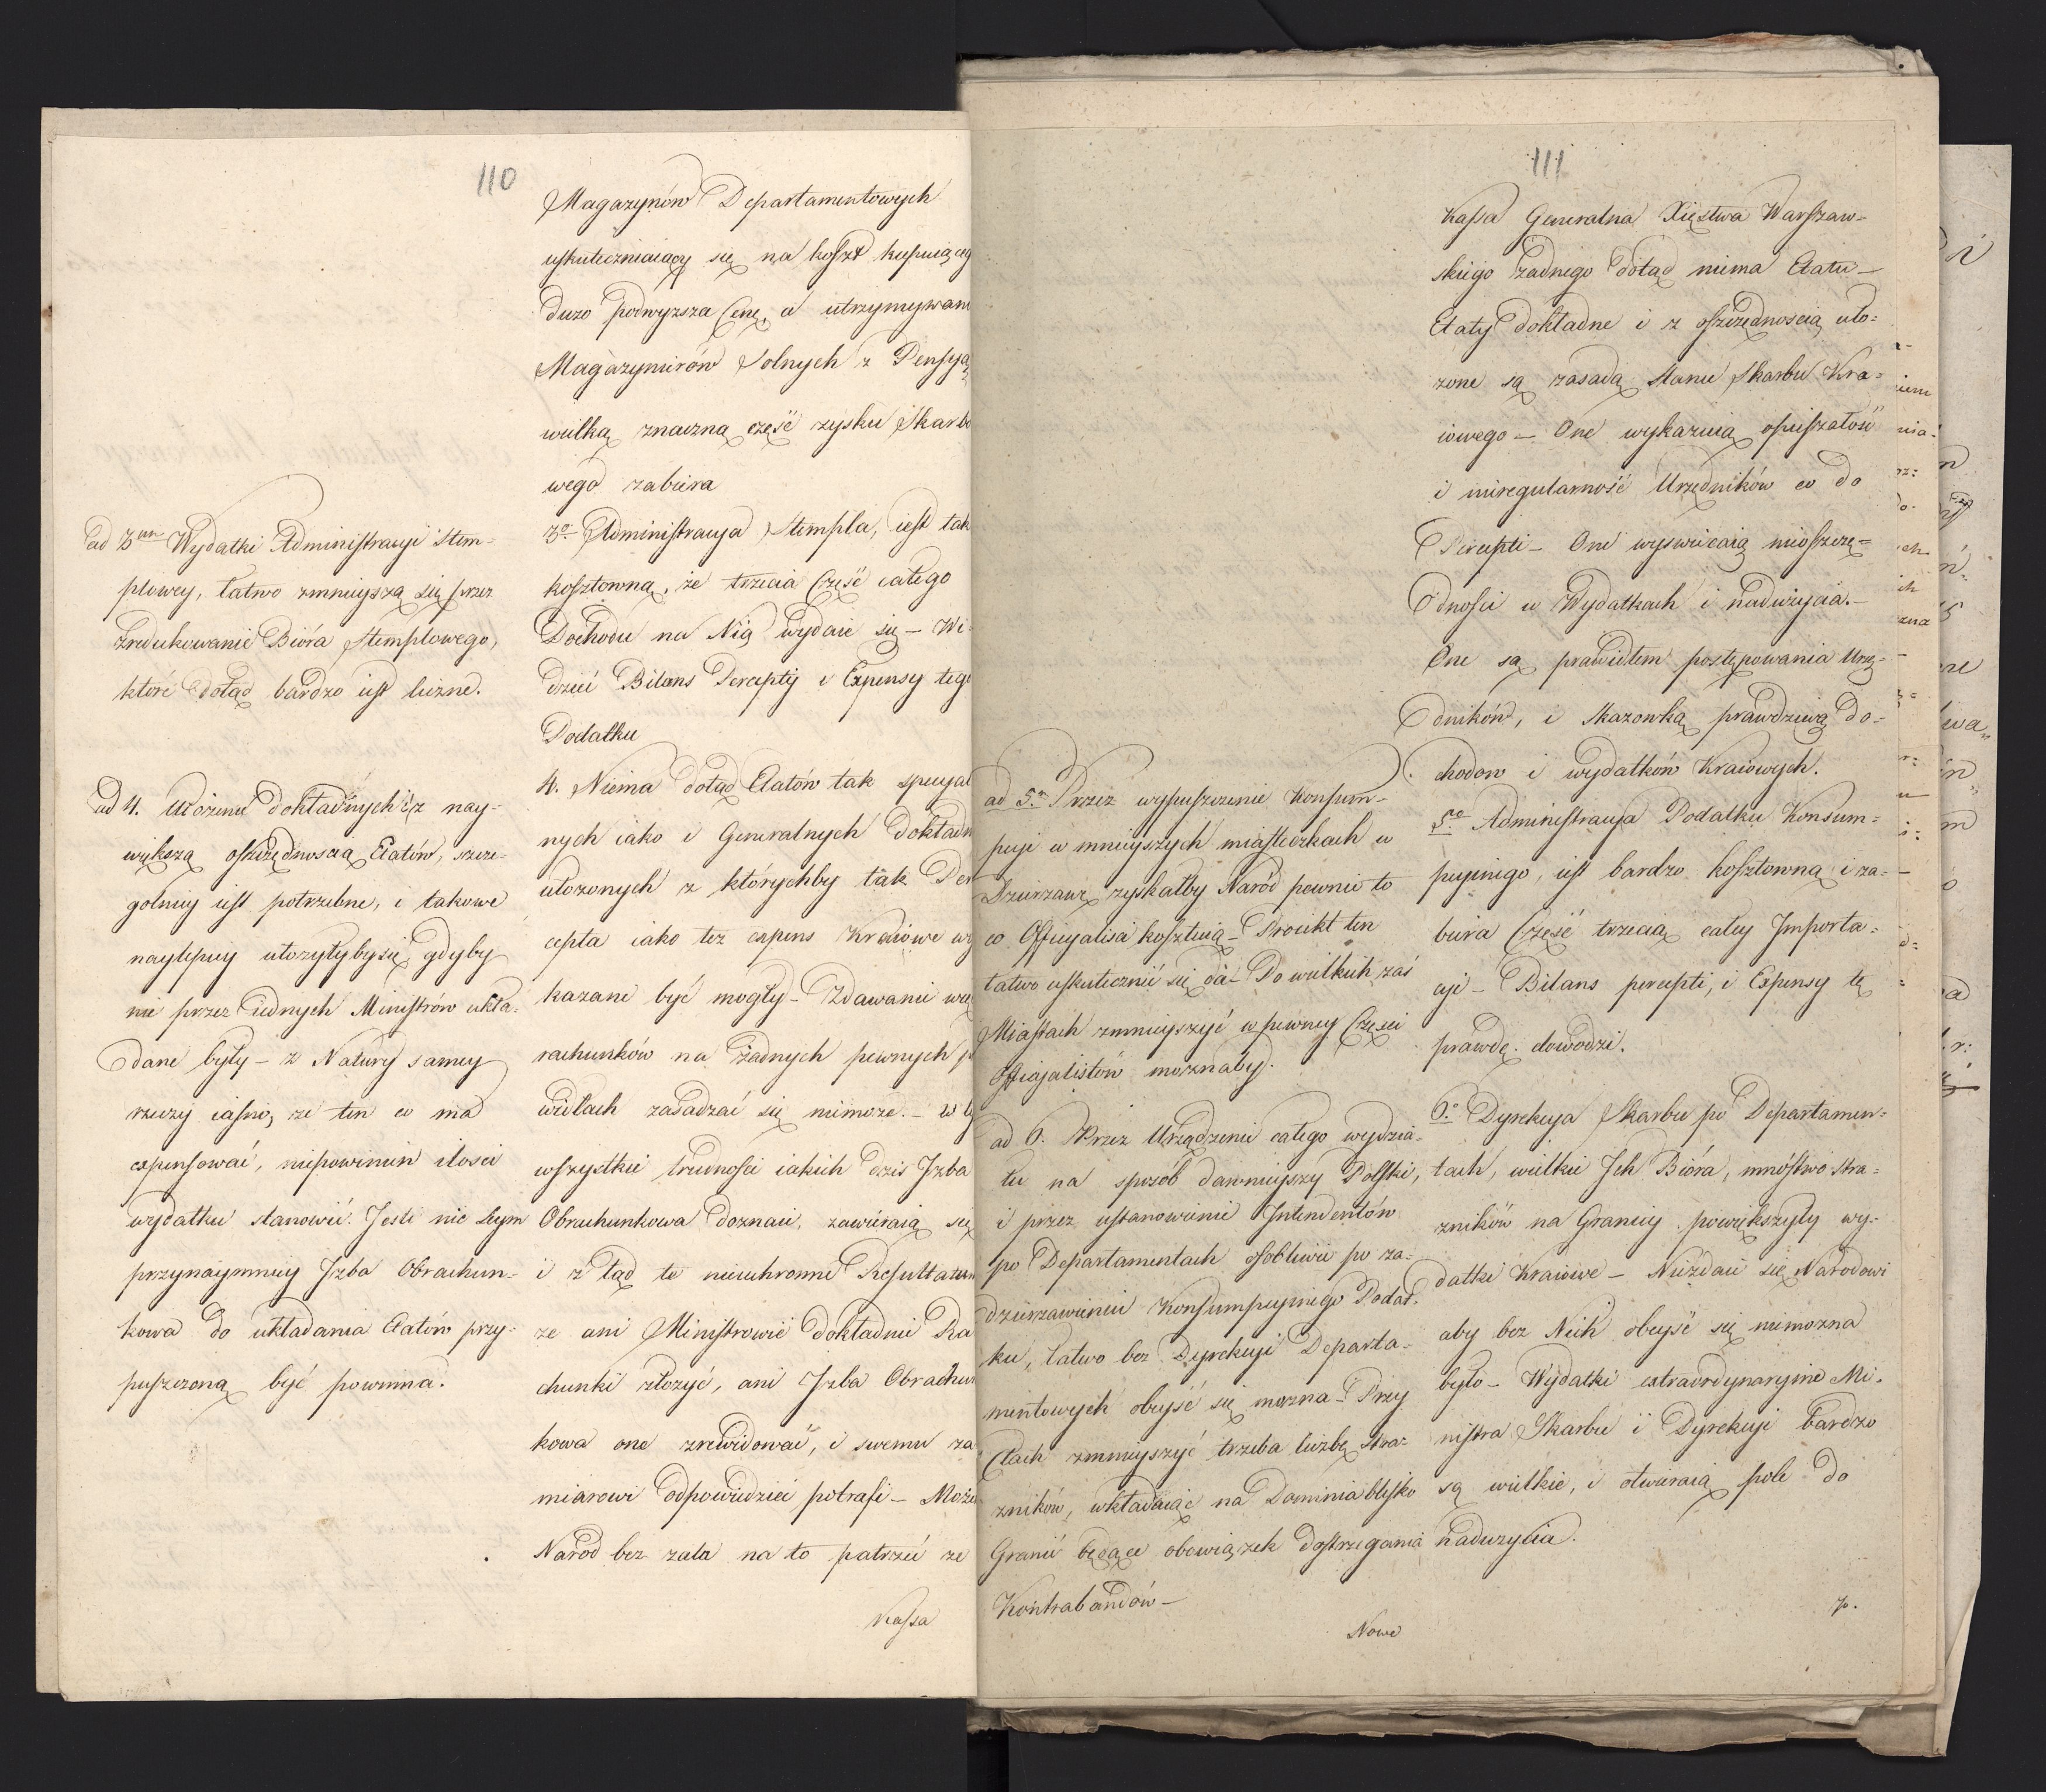 110
ad 3um Wydatki Administracyi Stem-
plowey, łatwo zmnieyszą się przez
zredukowanie Bióra stemplowego,
które dotąd bardzo iest liczne.
ad 4. Ułożenie dokładnych i z nay-
większą oszczędnoscią Etatów, szcze-
golniey iest potrzebne, i takowe
naylepiey ułozyłyby się gdyby
nie przez iednych Ministrów ukła-
dane były – z Natury samey
rzeczy iasno, ze ten co ma
expensować, niepowinien ilosci
wydatku stanowić. Jesli nie Seym
przynaymniey Jzba Obrachun-
kowa do układania Etatów przy-
puszczoną być powinna.
Magazynów Departamentowych
uskuteczniaiący się na koszt
duzo podwyzsza Cenę, a
Magazynierów Solnych z Pensyą
wielką znaczną część zysku
wego zabiera
3o Administracya Stempla, iest tak
kosztowną, że trzecia Część całego
Dochodu na Nią wydaie się – Wi-
dzieć Bilans Percepty i Expensy
Podatku
4. Niema dotąd Etatów tak
nych iako i Generalnych
ułozonych z którychby tak
cepta iako tez expens Kraiowe
kazane być mogły – Zdawanie
rachunków na żadnych pewnych
widłach zasadzać się niemoże. – w
wszystkie trudnosci iakich dzis Jzba
Obrachunkowa doznaie, zawieraią się
i z tąd te nieuchronne
ze ani Ministrowie dokładnie Ra
chunki złozyć, ani Jzba
kowa one zrewidować, i swemu za
miarowi odpowiedzieć potrafi –
Naród bez zalu na to patrzeć ze
Kassa
111
ad 5.m Przez wypuszczenie Konsum-
pcyi w mnieyszych miasteczkach w
Dzierzawę zyskałby Naród pewnie to
co Officyalisci kosztuią – Proiekt ten
łatwo uskutecznić się da – Po wielkich zaś
Miastach zmnieyszyć w pewney Części
Officyalistów moznaby.
ad 6. Przez Urządzenie całego wydzia-
łu na sposób dawnieyszy Polski,
i przez ustanowienie Jntendentów
po Departamentach osobliwie po za-
dzierzawieniu Konsumpcyinego Podat-
ku, łatwo bez Dyrekcyi Departa-
mentowych obeyść się mozna – Przy
Cłach zmnieyszyć trzeba liczbę stra-
zników, wkładaiąc na Dominia blisko
Granic będące obowiązek dostrzegania
Kontrabandów –
Nowe
Kassa Generalna Xięstwa Warszaw-
skiego żadnego dotąd niema Etatu –
Etaty dokładne i z oszczędnoscią uło-
zone są zasadą stanu Skarbu Kra-
iowego – One wykazuią opieszałość
i nieregularność Urzędników co do
Percepti – One wyswiecaią nieoszczę-
dnosci w Wydatkach i nadużycia. –
One są prawidłem postępowania Urzę-
dników, i skazowką prawdziwą do-
chodow i wydatków Kraiowych.
5o Administracya Podatku Konsum-
pcyinego, iest bardzo kosztowną i za-
biera Część trzecią całey Jmporta-
cyi – Bilans percepti, i Expensy tę
prawdę dowodzi.
6o Dyrekcya Skarbu po Departamen-
tach, wielkie Jch Bióra, mnóstwo stra-
zników na Granicy powiększyły wy-
datki Kraiowe – Niezdaie się Narodowi
aby bez Nich obeyść się niemozna
było – Wydatki extraordynaryine Mi-
nistra Skarbu i Dyrekcyi bardzo
są wielkie, i otwieraią pole do
naduzycia.
7o.